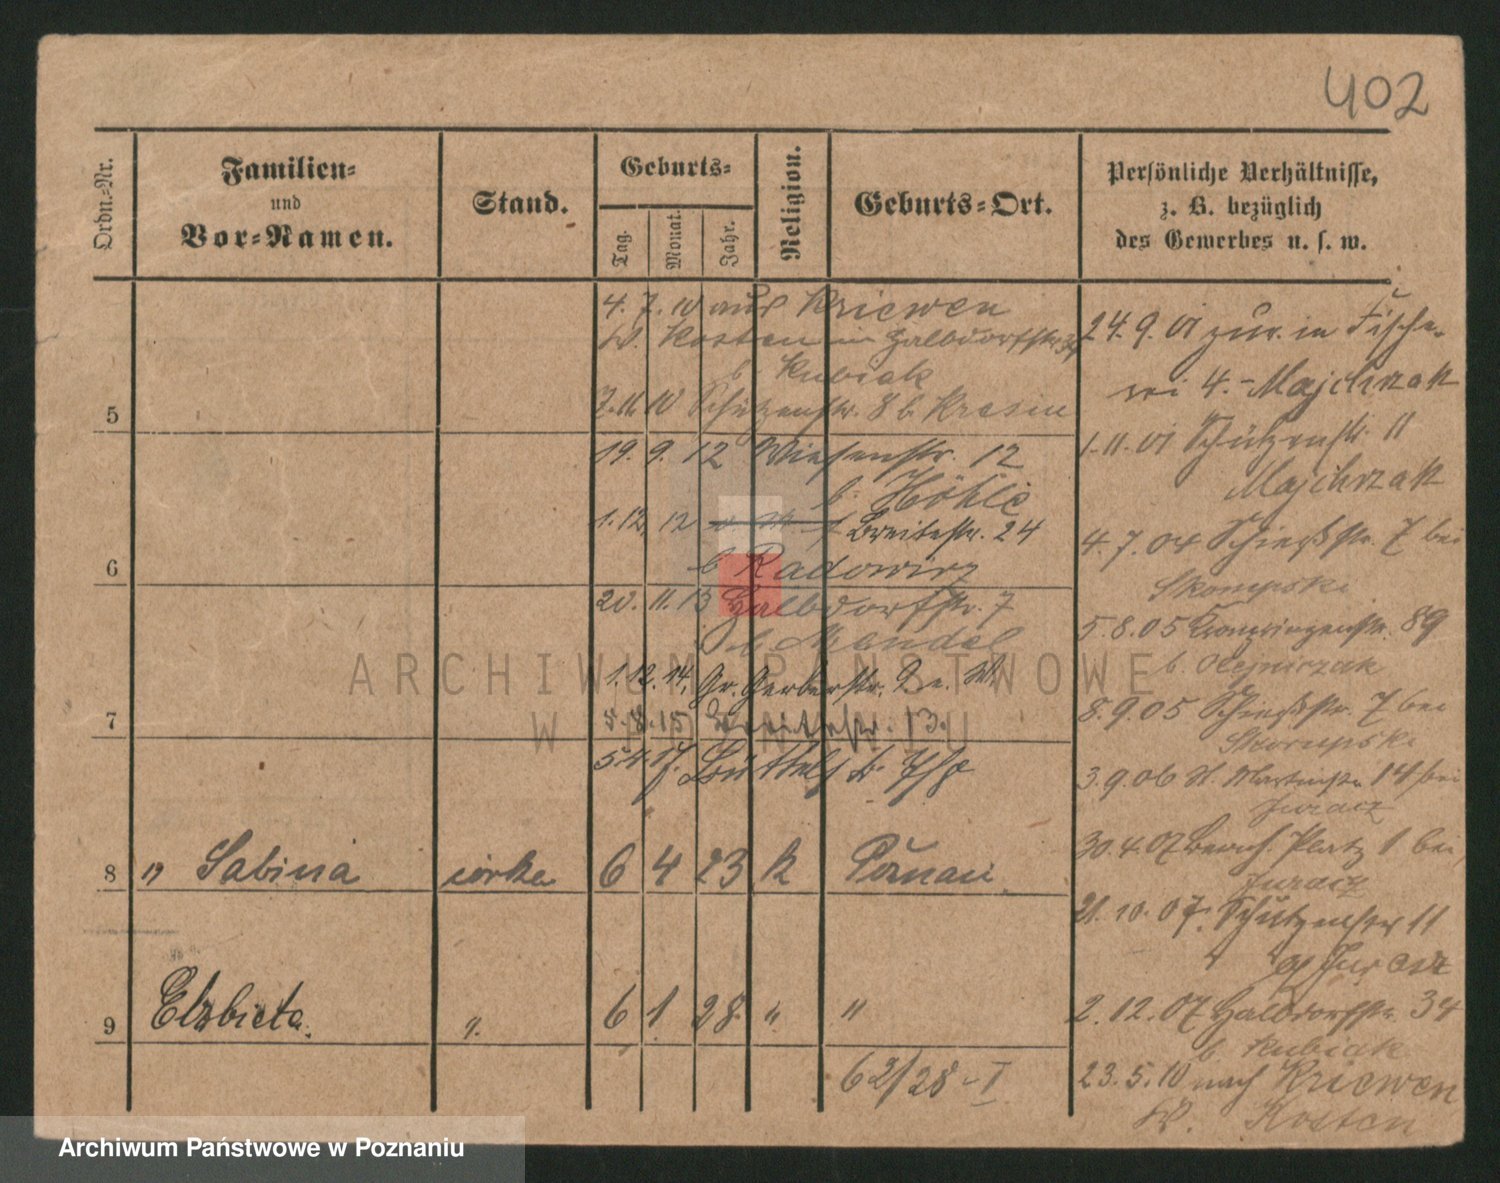 402
Ordn.-Nr.
Familien-
und
Vor-Namen.
Stand.
Geburts-
Tag.
Monat.
Jahr.
Religion.
Geburts-Ort.
Persönliche Verhältnisse,
z. B. bezüglich
des Gewerbes u. s. w.
4. 7. 10 aus Kriewen
Kosten in Halbdorfstr. 34
b. Kubiak
5
7. 11. 10 Schützenstr. 8 b. Krasin
19. 9. 12 Wiesenstr. 12
b. Höhle
1. 12. 12 Breitestr. 24
6
b Radowicz
20. 11. 13 Halbdorfstr. 7
b. Mendel
1. 12. 14. Gr. Gerberstr. 9
7
5. 8. 15 Breitestr. 13.
5. 4. 17.
8 " Sabina córka 6 4 23 k Poznań
9 Elżbieta. ". 6 1 28 " "
62/28 - I
24. 9. 01 zur. in Fische-
rei 4. - Majchrzak
1. 11. 01 Schützenstr. 11
Majchrzak
4. 7. 04 Schießstr. 7 bei
Skorupski
5. 8. 05 Kronprinzenstr. 89
b. Olejniczak
8. 9. 05 Schießstr. 7 bei
Skorupski
3. 9. 06 St. Martinstr. 14 bei
Juracz
30. 4. 07 Platz 1 bei
Juracz
21. 10. 07. Schützenstr 11
Juracz
2. 12. 07 Halbdorfstr. 34
b. Kubiak
23. 5. 10 nach Kriewen
Kosten
ARCHIWUM PAŃSTWOWE
W POZNANIU
Archiwum Państwowe w Poznaniu